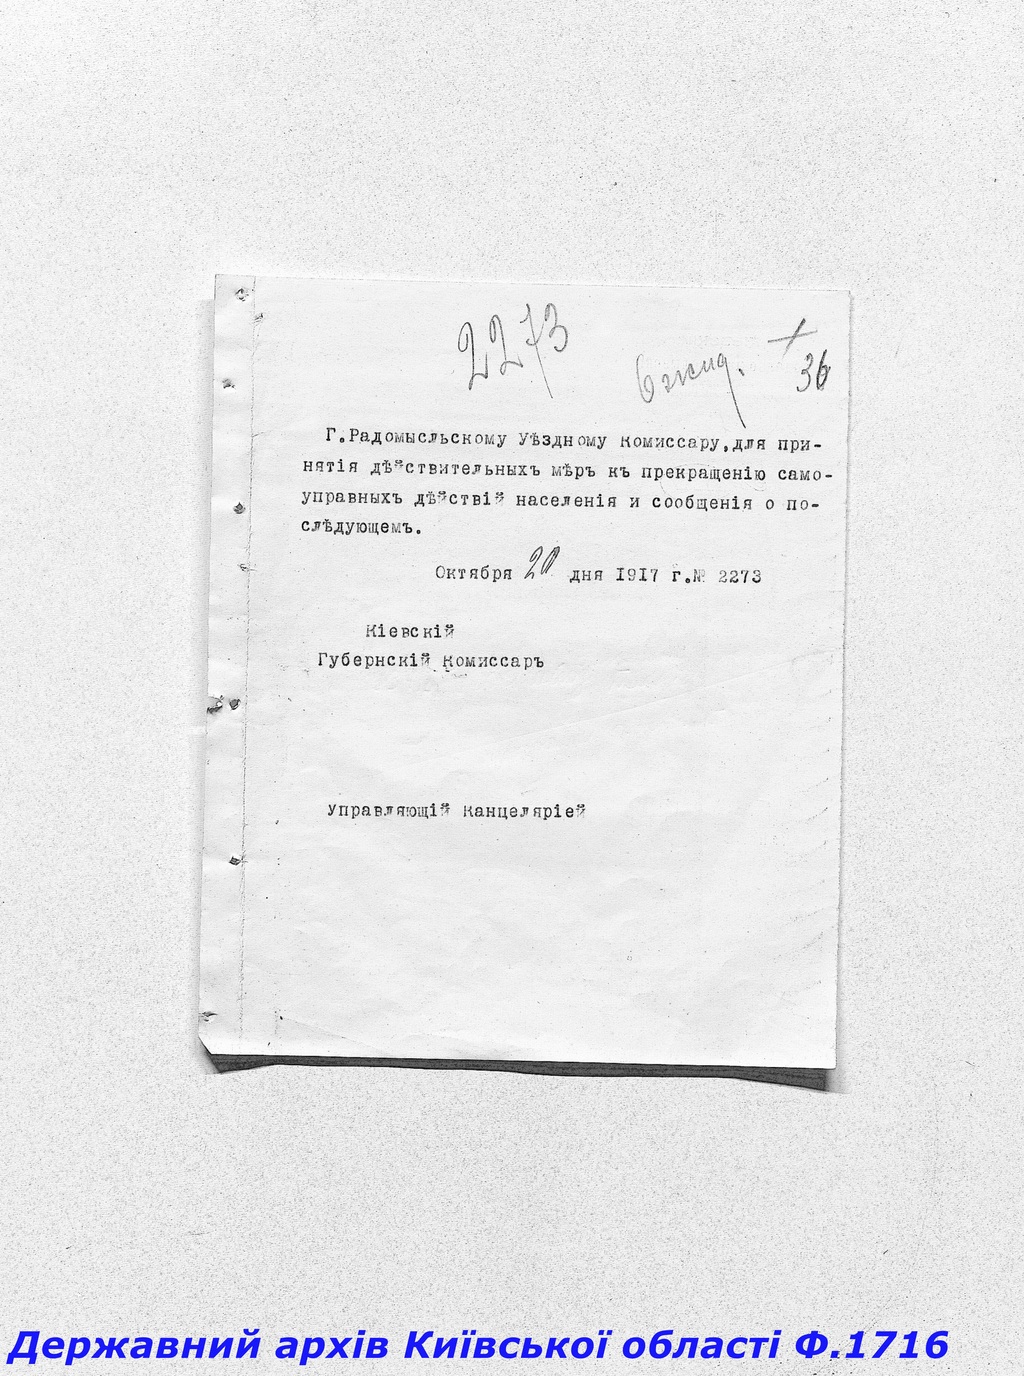 2273
36
Г.Радомысльскому Уѣздному Комиссару,для при-
нятія дѣйствительныхъ мѣръ къ прекращенію само-
управныхъ дѣйствій населенія и сообщенія о по-
слѣдующемъ.
Октября 20 дня 1917 г.№ 2273
Кіевскій
Губернскій Комиссаръ
Управляющій Канцеляріей
Державний архів Київської області Ф.1716